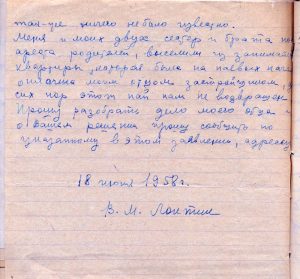 так-же ничего не было известно.
Меня и моих двух сестер и брата после
ареста родителей, выселили из занимаемой
квартиры, которая была на паевых началах
оплачена моим отцом застройщиком, до
сих пор этот пай нам не возвращен.
Прошу разобрать дело моего отца
о Вашем решении прошу сообщить по
указанному в этом заявлении, адресу
18 июня 1958г.
В. М.